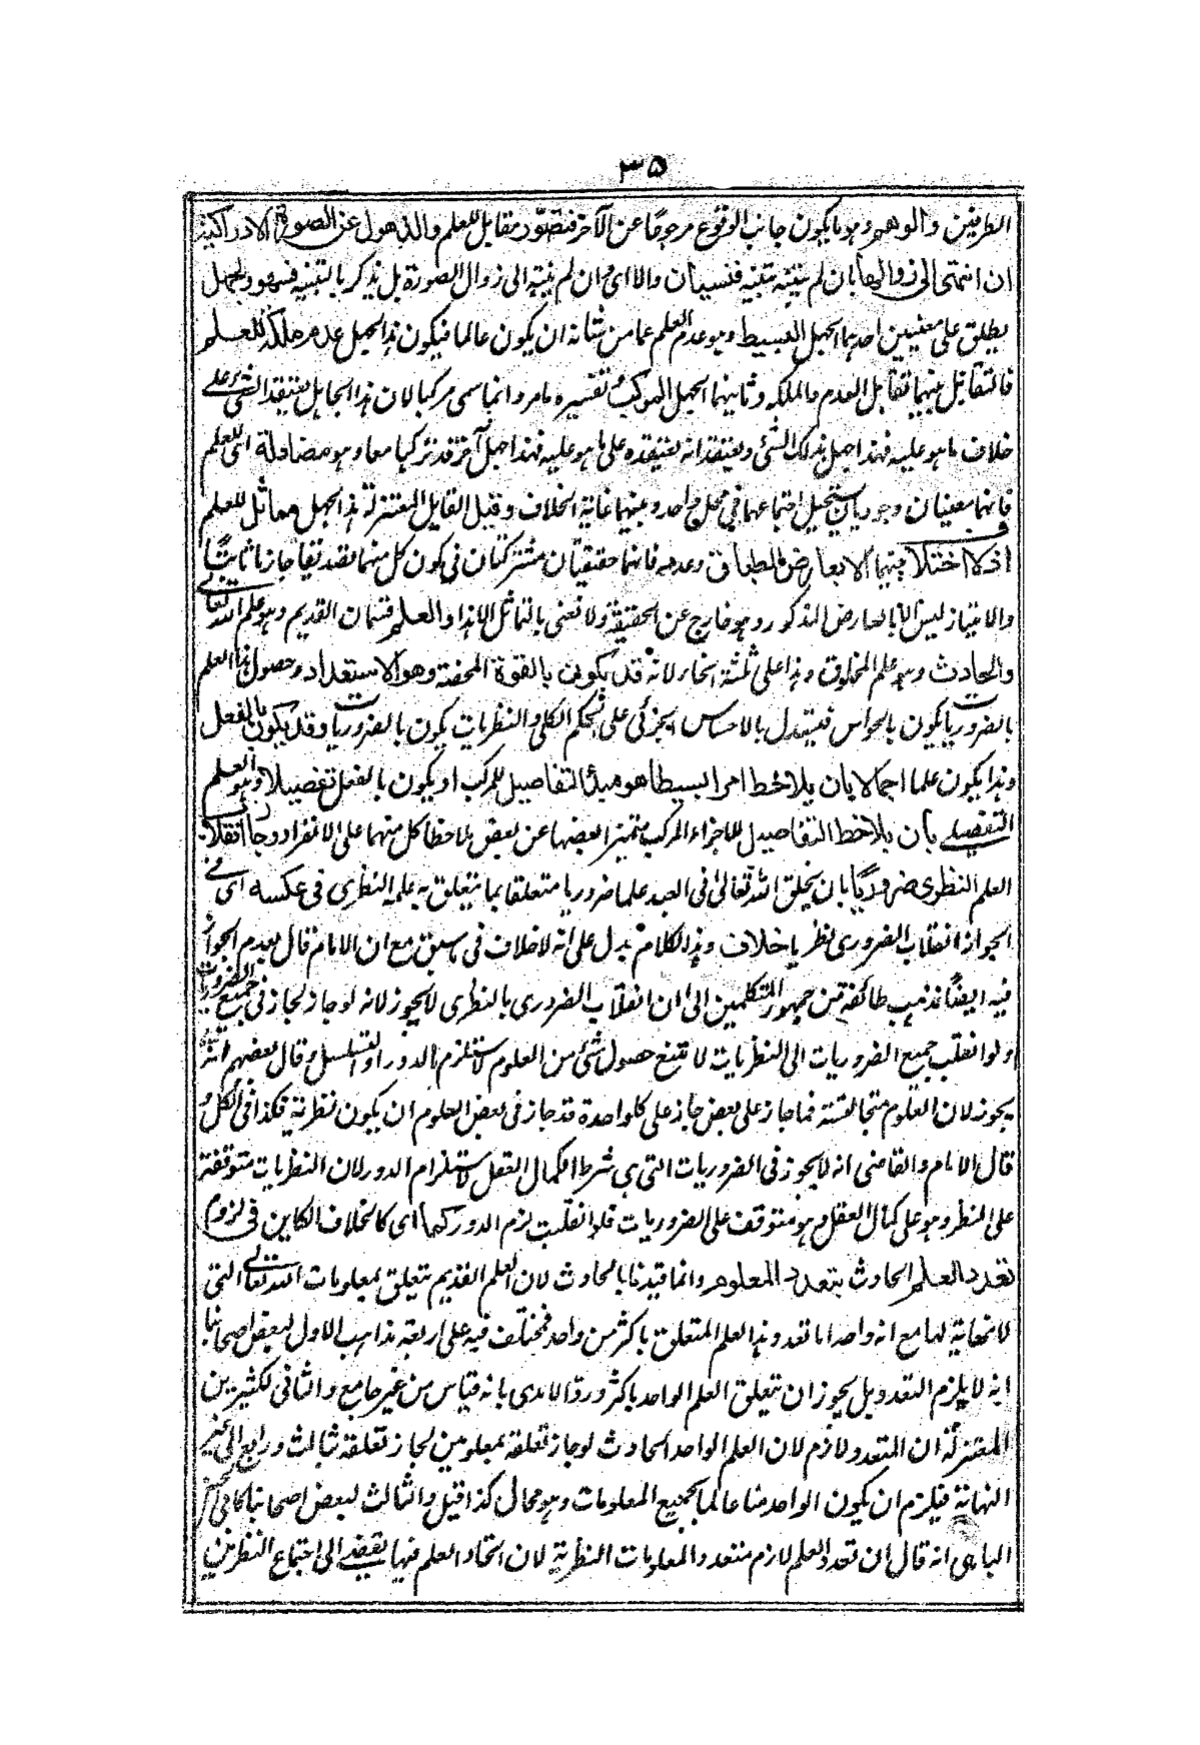 ٣٥
الطرفين والوهم وهو ما يكون جانب الوقوع مرجوحًا عن الآخر فتصوّر مقابل للعلم والذهول عن الصورة الادراكية
ان انتهى الى زوالها بان لم يتنبه بتنبيه فنسيان والا اى وان لم ينته الى زوال الصورة بل يذكر بالتنبيه فسهو والجهل
يطلق على معنيين احدهما الجهل البسيط وهو عدم العلم عما من شانه ان يكون عالما فيكون هذا الجهل عدم ملكة للعلم
فالتقابل بينهما تقابل العدم والملكه وثانيهما الجهل المركب تفسيره ما مر وانما سمى مركبا لان هذا الجاهل يعتقد الشئ على
خلاف ما هو عليه فهذا جهل بذلك الشئ ويعتقد انه يعتقده على ما هو عليه فهذا جهل آخر قد تركبا معا وهو مضاد له اى للعلم
فانهما معنيان وجوديان يستحيل اجتماعهما في محل واحد وبينهما غاية الخلاف وقيل القايل المعتزلة هذا الجهل مماثل للعلم
اذ لا اختلاف بينهما الا بعارض المطابقة وعدمه فانهما حقيقتان مشتركتان فى كون كل منهما تصديقا جازما ثابتًا
والامتياز ليس الا بالعارض المذكور وهو خارج عن الحقيقة ولا نعنى بالتماثل الا هذا والعلم قسمان القديم وهو علم الله تعالى
والحادث وهو علم المخلوق وهذا على ثلثة انحاء لانه قد يكون بالقوة المحضة وهو الاستعداد وحصول هذا العلم
بالضروريات يكون بالحواس فيستدل بالاحساس الجزئى على الحكم الكلى والنظريات يكون بالضروريات وقد يكون بالفعل
وهذا يكون علما اجمالا بان يلاحظ امرا بسيطا هو مبدأ التفاصيل للمركب او يكون بالفعل تفصيلا وهو العلم
التفصيلى بان يلاحظ التفاصيل للاجزاء المركب متميزا بعضها عن بعض ملاحظا كل منهما على الانفراد وجاز انقلاب
العلم النظرى ضروريًا بان يخلق الله تعالى فى العبد علما ضروريا متعلقا بما يتعلق به علمه النظرى فى عكسه اى فى
الجواز انقلاب الضرورى نظريا خلاف وهذا الكلام يدل على انه لا خلاف فى ما سبق مع ان الامام قال بعدم الجواز
فيه ايضًا فذهب طائفة من جمهور المتكلمين الى ان انقلاب الضرورى بالنظرى لا يجوز لانه لو جاز لجاز فى جميع الضروريات
ولو انقلب جميع الضروريات الى النظريات لامتنع حصول شئ من العلوم لاستلزام الدور او التسلسل وقال بعضهم انه
يجوز لان العلوم متجانسة فما جاز على بعض جاز على كلواحدة قد جاز فى بعض العلوم ان يكون نظرية فكذا فى الكل و
قال الامام والقاضى انه لا يجوز فى الضروريات التى هى شرط الكمال العقل لاستلزام الدور لان النظريات متوقفة
على النظر وهو على كمال العقل وهو متوقف على الضروريات فلو انقلبت لزم الدور كما اى كالخلاف الكاين فى لزوم
تعدد العلم الحادث بتعدد المعلوم وانما قيدنا بالحادث لان العلم القديم يتعلق بمعلومات الله تعالى التى
لا نهاية لها مع انه واحد اما تعدد هذا العلم المتعلق باكثر من واحد فمختلف فيه على اربعة مذاهب الاول لبعض اصحابنا
انه لا يلزم التعدد بل يجوز ان يتعلق العلم الواحد باكثر ورد الامدى بانه قياس من غير جامع والثانى لكثير من
المعتزلة ان التعدد لازم لان العلم الواحد الحادث لو جاز تعلقه بمعلومين لجاز تعلقه بثالث ورابع الى غير
النهاية فيلزم ان يكون الواحد منا عالما بجميع المعلومات وهو محال كذا قيل والثالث لبعض اصحابنا كابى الحسن
الباهلى انه قال ان تعدد العلم لازم متعدد المعلومات النظرية لان اتحاد العلم فيها يقضى الى اجتماع النظرين